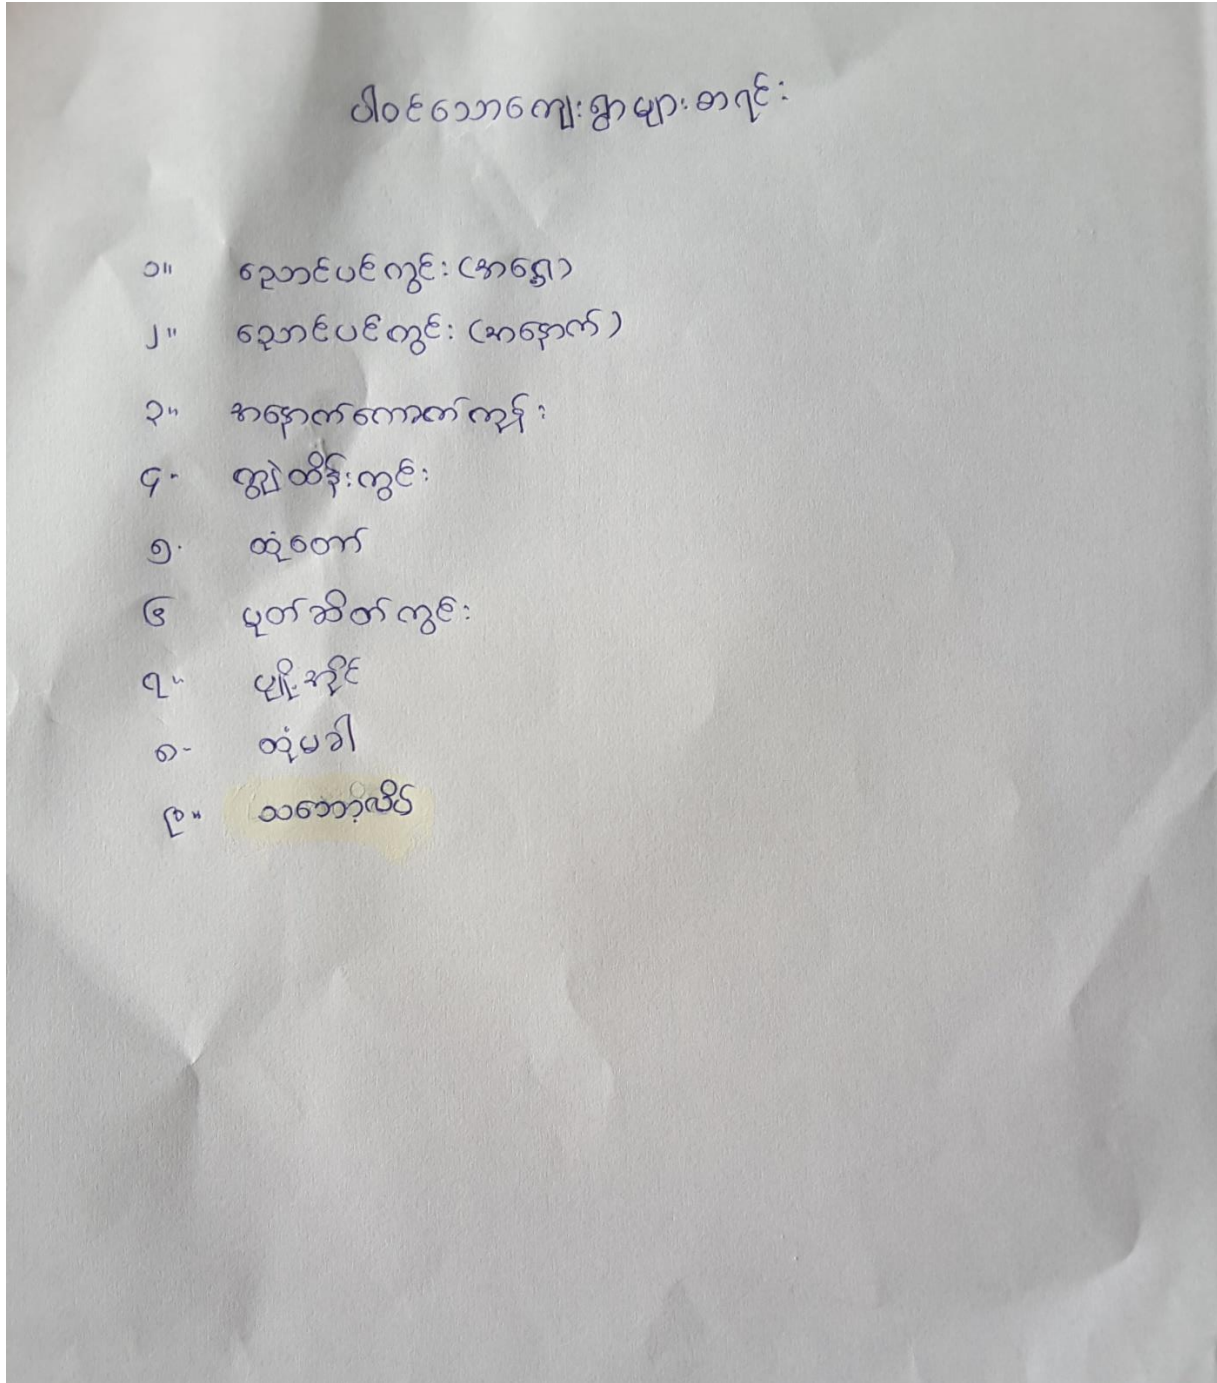 ပါဝင်သောကျေးရွာများစာရင်း
၁။ ညောင်ပင်ကွင်း (အရှေ့)
၂။ ညောင်ပင်ကွင်း (အနောက်)
၃။ အနောက်ကောက်ကွန်း
၄- ကျွဲထိန်းကွင်း
၅. ထုံတော်
၆ မုတ်ဆိတ်ကွင်း
၇။ မျိုးအိုင်
၈- ထုံမခါ
၉။ သဘော့လိပ်